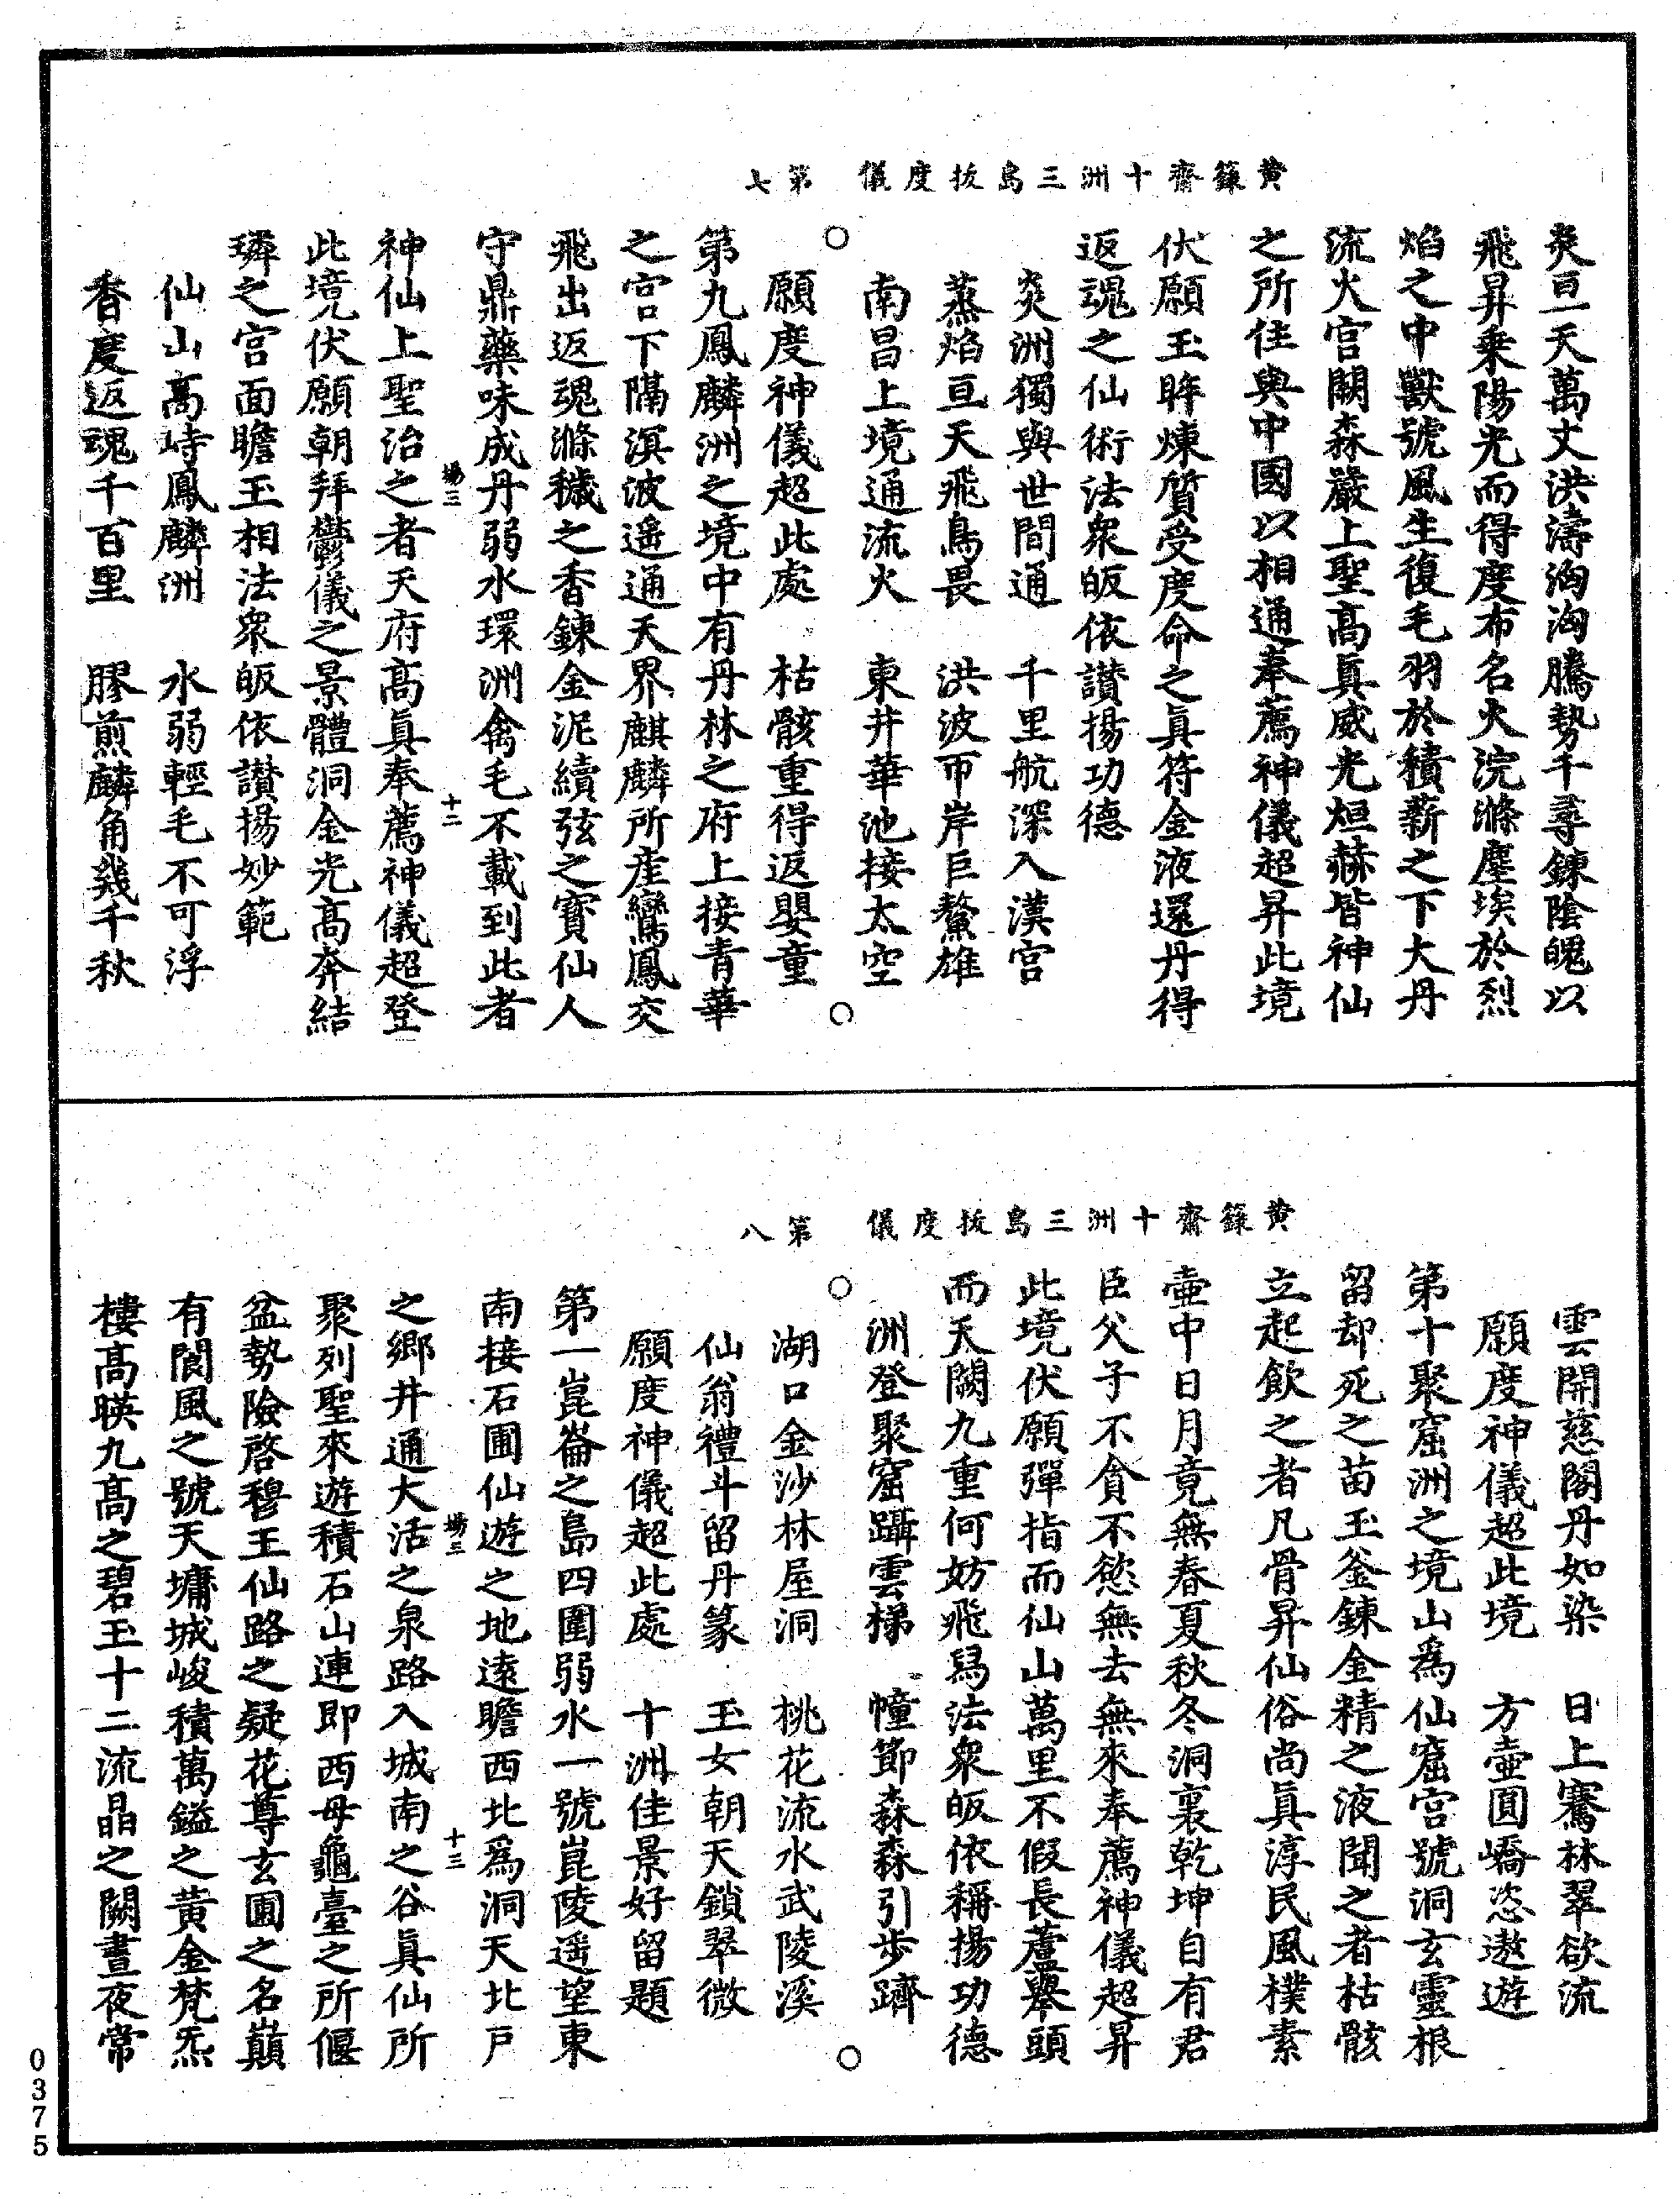 黃籙齋十洲三島拔度儀　第七
炎亘天萬丈洪濤洶洶騰勢千尋鍊陰魄以
飛昇乗陽光而得度布名火浣滌塵埃於烈
焰之中獸號風生復毛羽於積薪之下大丹
流火宮闕森嚴上聖高眞威光烜赫皆神仙
之所住與中國以相通奉薦神儀超昇此境
伏願玉眸煉質受度命之眞符金液還丹得
返魂之仙術法衆皈依讃揚功德
炎洲獨與世間通　千里航深入漢宮
蒸焰亘天飛鳥畏　洪波帀岸巨鰲雄
南昌上境通流火　東井華池接太空
願度神儀超此處　枯骸重得返嬰童
第九鳳麟洲之境中有丹林之府上接青華
之宮下隔溟波遥通天界麒麟所産鸞鳳交
飛出返魂滌穢之香鍊金泥續弦之寶仙人
守鼎藥味成丹弱水環洲禽毛不載到此者
場三　十二
神仙上聖治之者天府高眞奉薦神儀超登
此境伏願朝拜鬱儀之景體洞金光高奔結
璘之宮面瞻玉相法衆皈依讃揚妙範
仙山高峙鳳麟洲　水弱輕毛不可浮
香度返魂千百里　膠煎麟角幾千秋
黃籙齋十洲三島拔度儀　第八
雲開慈閣丹如染　日上騫林翠欲流
願度神儀超此境　方壷圓嶠恣遨遊
第十聚窟洲之境山爲仙窟宮號洞玄靈根
留却死之苗玉釜鍊金精之液聞之者枯骸
立起飲之者凡骨昇仙俗尚眞淳民風樸素
壷中日月竟無春夏秋冬洞裏乾坤自有君
臣父子不貪不慾無去無來奉薦神儀超昇
此境伏願彈指而仙山萬里不假長蘆舉頭
而天闕九重何妨飛舄法衆皈依稱揚功德
洲登聚窟躡雲梯　幢節森森引步躋
湖口金沙林屋洞　桃花流水武陵溪
仙翁禮斗留丹篆　玉女朝天鎖翠微
願度神儀超此處　十洲佳景好留題
第一崑崙之島四圍弱水一號崑陵遥望東
南接石圃仙遊之地遠瞻西北爲洞天北戶
場三　十三
之鄉井通大活之泉路入城南之谷眞仙所
聚列聖來遊積石山連即西母龜臺之所偃
盆勢險啓穆王仙路之疑花尊玄圃之名巔
有閬風之號天墉城峻積萬鎰之黃金梵炁
樓高暎九高之碧玉十二流晶之闕晝夜常
0375